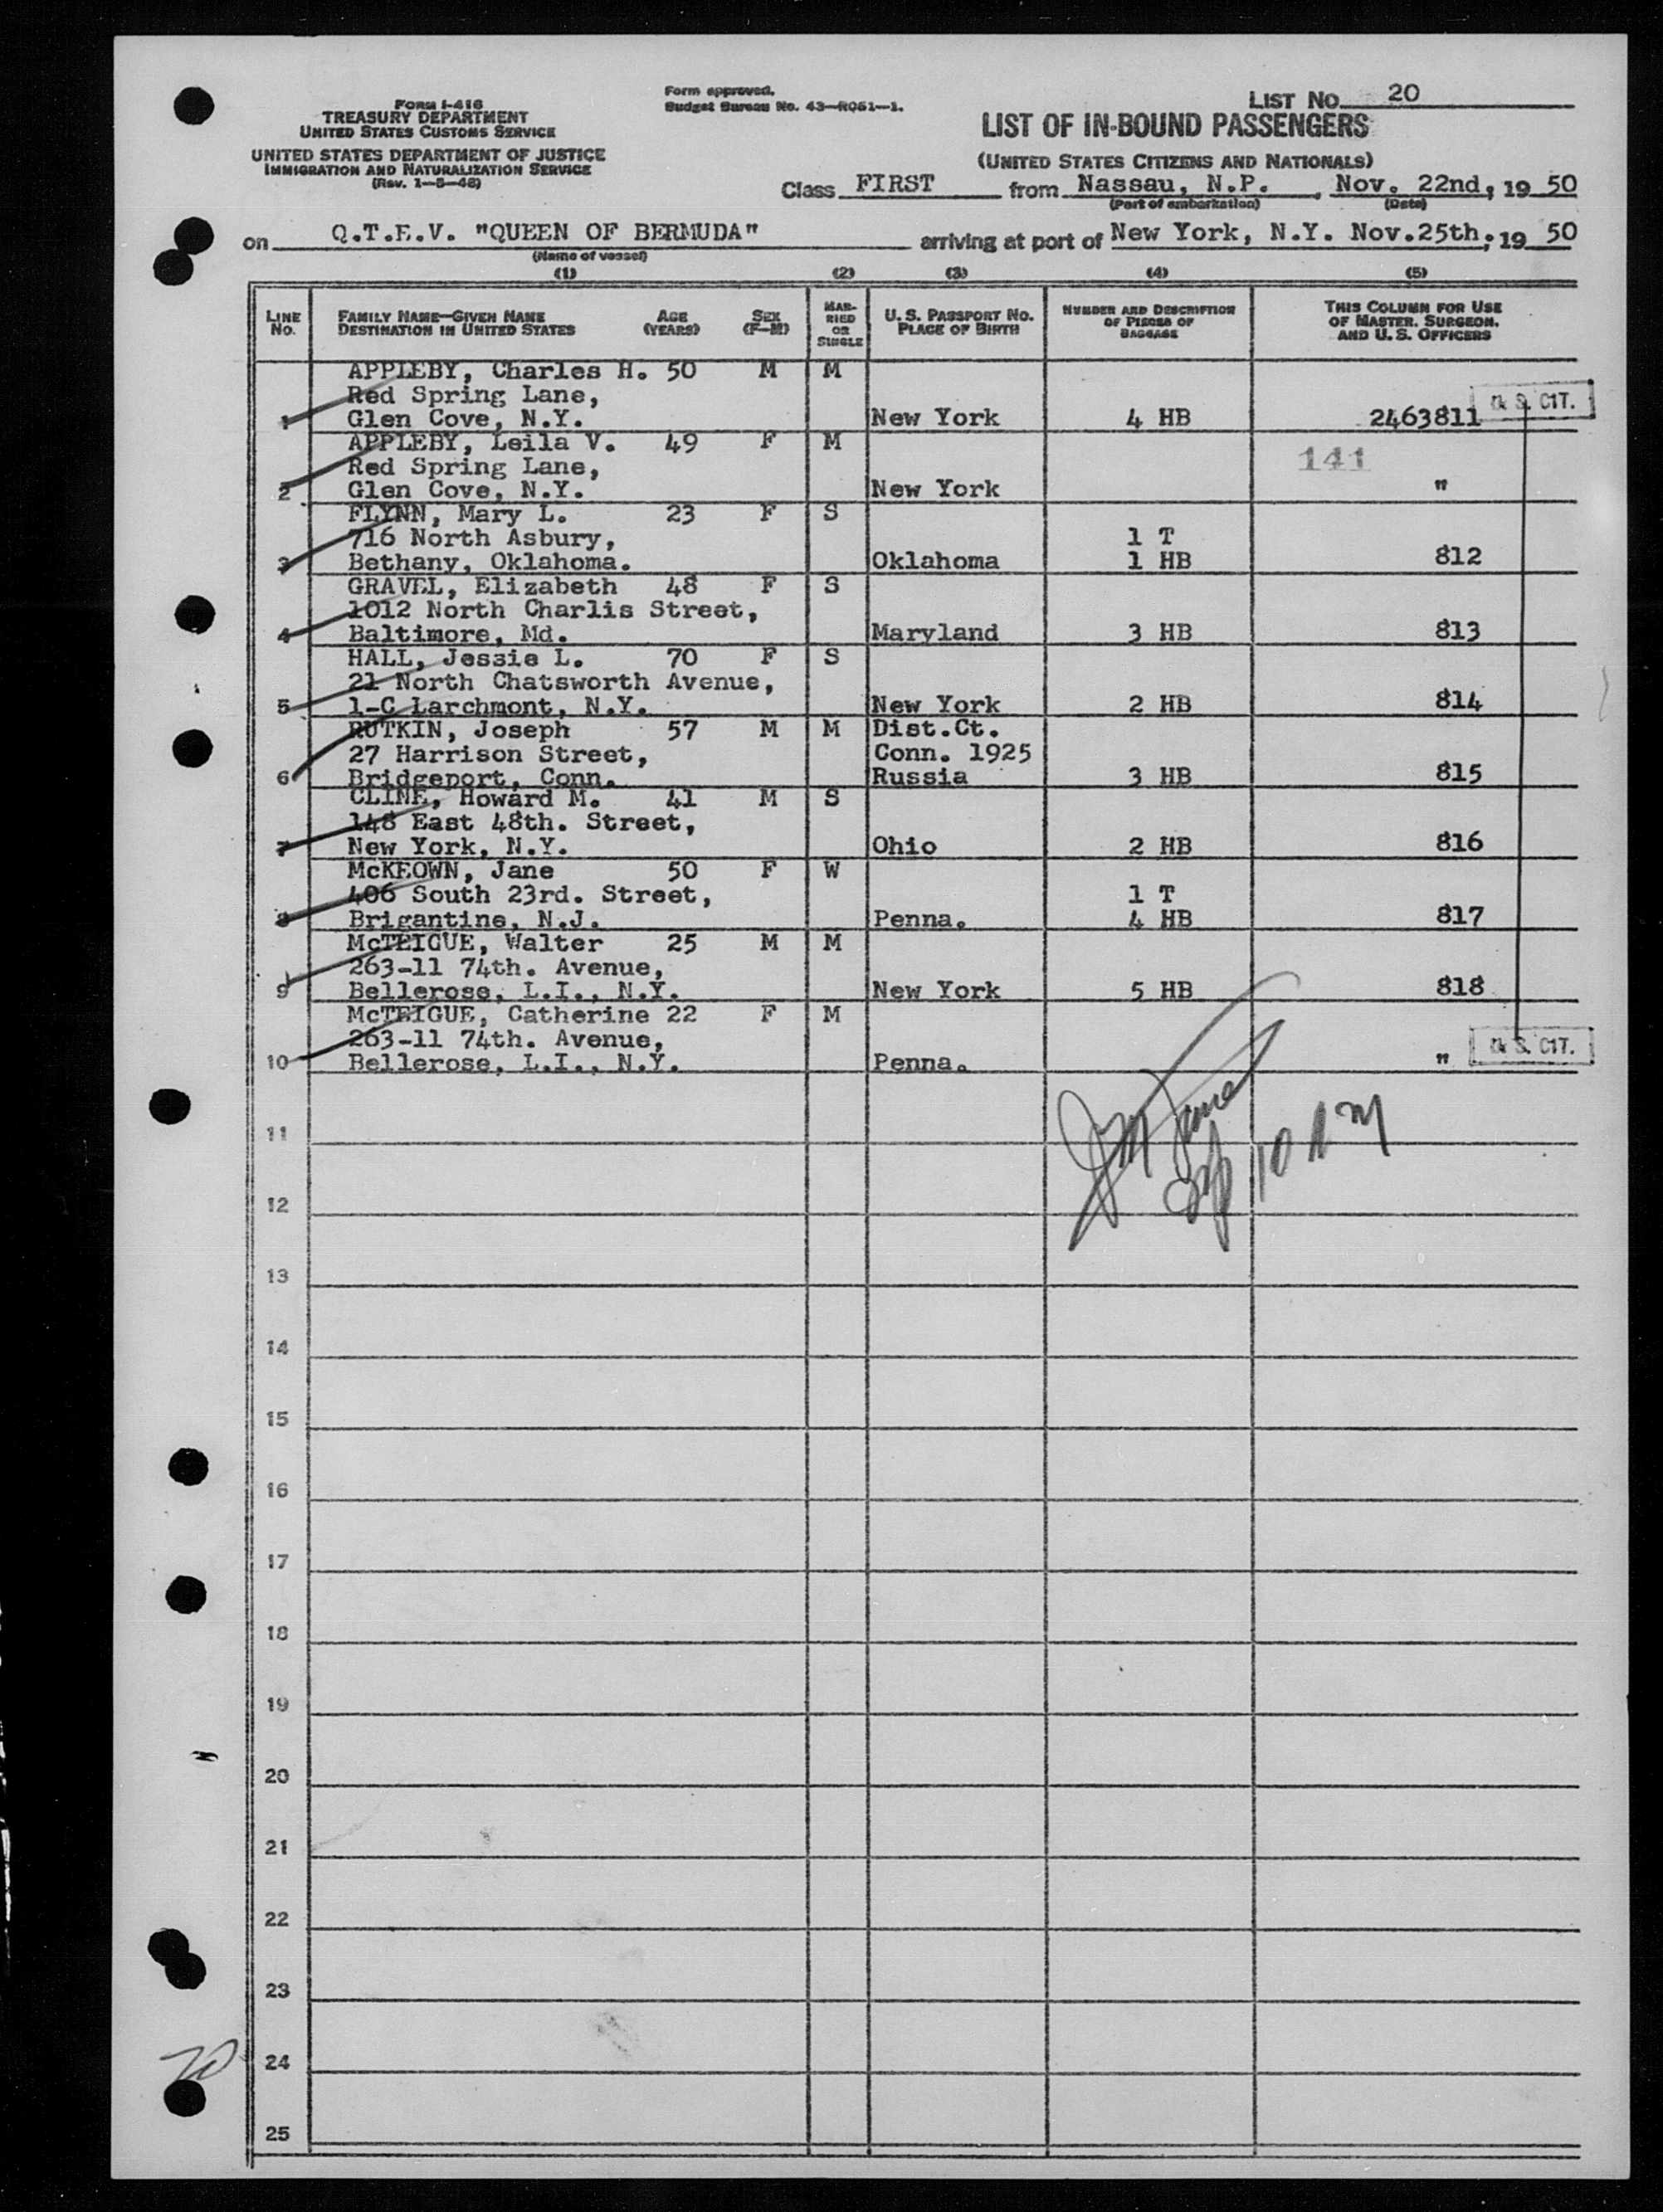 Form I-416
TREASURY DEPARTMENT
UNITED STATES CUSTOMS SERVICE
UNITED STATES DEPARTMENT OF JUSTICE
IMMIGRATION AND NATURALIZATION SERVICE
(Rev. 1-5-48)
Form approved.
Budget Bureau No. 43—R061—1.
LIST NO. 20
LIST OF IN-BOUND PASSENGERS
(UNITED STATES CITIZENS AND NATIONALS)
Class FIRST from Nassau, N.P., Nov. 22nd, 19 50
(Port of embarkation) (Date)
on Q.T.E.V. "QUEEN OF BERMUDA" arriving at port of New York, N.Y. Nov.25th, 19 50
(Name of vessel)
(1) (2) (3) (4) (5)
LINE NO. FAMILY NAME—GIVEN NAME DESTINATION IN UNITED STATES AGE (YEARS) SEX (F-M) MARRIED OR SINGLE U. S. PASSPORT NO. PLACE OF BIRTH NUMBER AND DESCRIPTION OF PIECES OF BAGGAGE THIS COLUMN FOR USE OF MASTER, SURGEON, AND U. S. OFFICERS
APPLEBY, Charles H. 50 M M
Red Spring Lane, U. S. CIT.
1 Glen Cove, N.Y. New York 4 HB 2463811
APPLEBY, Leila V. 49 F M
Red Spring Lane, 141
2 Glen Cove, N.Y. New York "
FLYNN, Mary L. 23 F S
716 North Asbury, 1 T
3 Bethany, Oklahoma. Oklahoma 1 HB 812
GRAVEL, Elizabeth 48 F S
1012 North Charlis Street,
4 Baltimore, Md. Maryland 3 HB 813
HALL, Jessie L. 70 F S
21 North Chatsworth Avenue,
5 1-C Larchmont, N.Y. New York 2 HB 814
RUTKIN, Joseph 57 M M Dist.Ct.
27 Harrison Street, Conn. 1925
6 Bridgeport, Conn. Russia 3 HB 815
CLINE, Howard M. 41 M S
148 East 48th. Street,
7 New York, N.Y. Ohio 2 HB 816
McKEOWN, Jane 50 F W
406 South 23rd. Street, 1 T
8 Brigantine, N.J. Penna. 4 HB 817
McTEIGUE, Walter 25 M M
263-11 74th. Avenue,
9 Bellerose, L.I., N.Y. New York 5 HB 818
McTEIGUE, Catherine 22 F M
263-11 74th. Avenue, U. S. CIT.
10 Bellerose, L.I., N.Y. Penna. "
11
12
13
14
15
16
17
18
19
20
21
22
23
24
25
20